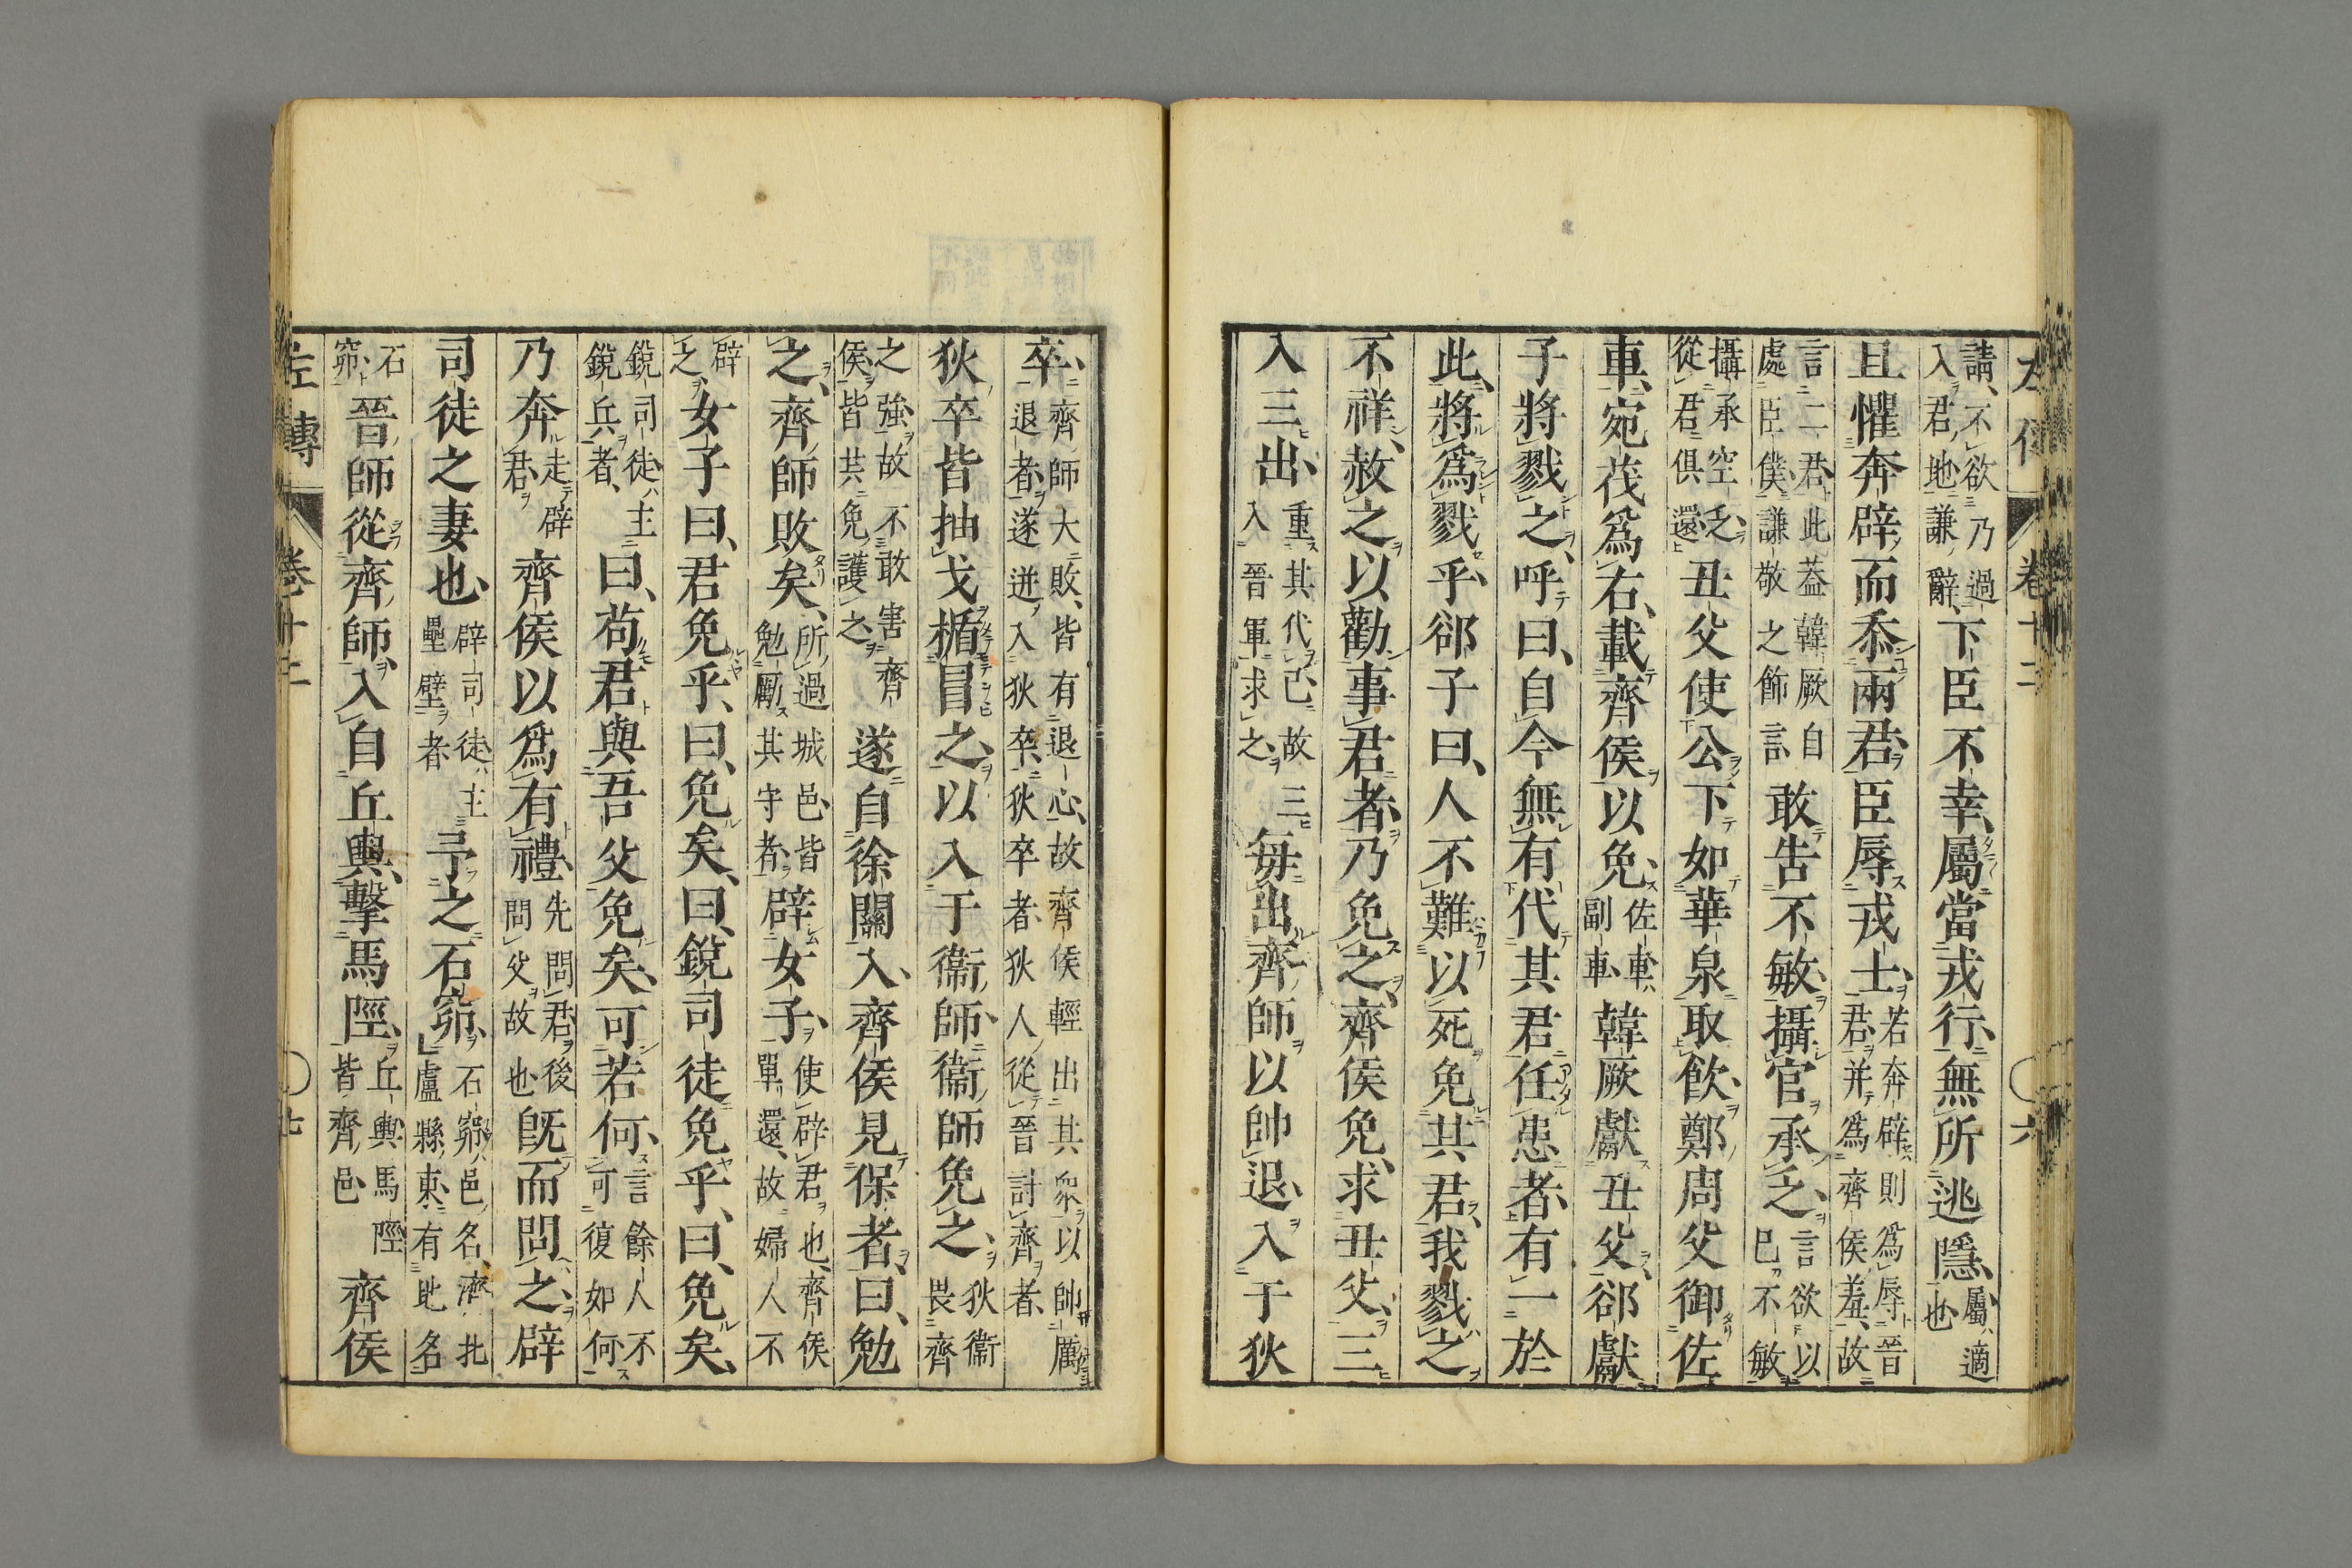 左傳 卷十二 六
請、不欲乃過入君地、謙辭、下臣不幸、屬當戎行、無所逃隱、屬適也
且懼奔辟、而忝兩君、臣辱戎士、若奔辟則爲辱晉君、并爲齊侯羞、故
言二君、此蓋韓厥自處臣僕、謙敬之飾言、敢告不敏、攝官承乏、言欲以已不敏
攝承空乏、從君俱還、丑父使公下如華泉取飮、鄭周父御佐
車、宛茷爲右、載齊侯以免、佐車、副車、韓厥獻丑父、郤獻
子將戮之、呼曰、自今無有代其君任患者、有一於
此、將爲戮乎、郤子曰、人不難以死免其君、我戮之
不祥、赦之以勸事君者、乃免之、齊侯免、求丑父、三
入三出、重其代己、故三入晉軍求之、每出齊師以帥退、入于狄
卒、齊師大敗、皆有退心、故齊侯輕出其衆以帥厲退者、遂迸入狄卒、狄卒者、狄人從晉討齊者、
狄卒皆抽戈楯冒之、以入于衞師、衞師免之、狄衞畏齊
之強、故不敢害齊侯、皆共免護之、遂自徐關入、齊侯見保者、曰、勉
之、齊師敗矣、所過城邑、皆勉勵其守者、辟女子、使辟君也、齊侯單還、故婦人不
辟之、女子曰、君免乎、曰、免矣、曰、銳司徒免乎、曰、免矣、
銳司徒、主銳兵者、曰、苟君與吾父免矣、可若何、言餘人不可復如何
乃奔、走辟君、齊侯以爲有禮、先問君、後問父故也、旣而問之、辟
司徒之妻也、辟司徒、主壘壁者、予之石窌、石窌、邑名、濟北盧縣東有地名
石窌、晉師從齊師、入自丘輿、擊馬陘、丘輿馬陘皆齊邑、齊侯
左傳 卷十二 七